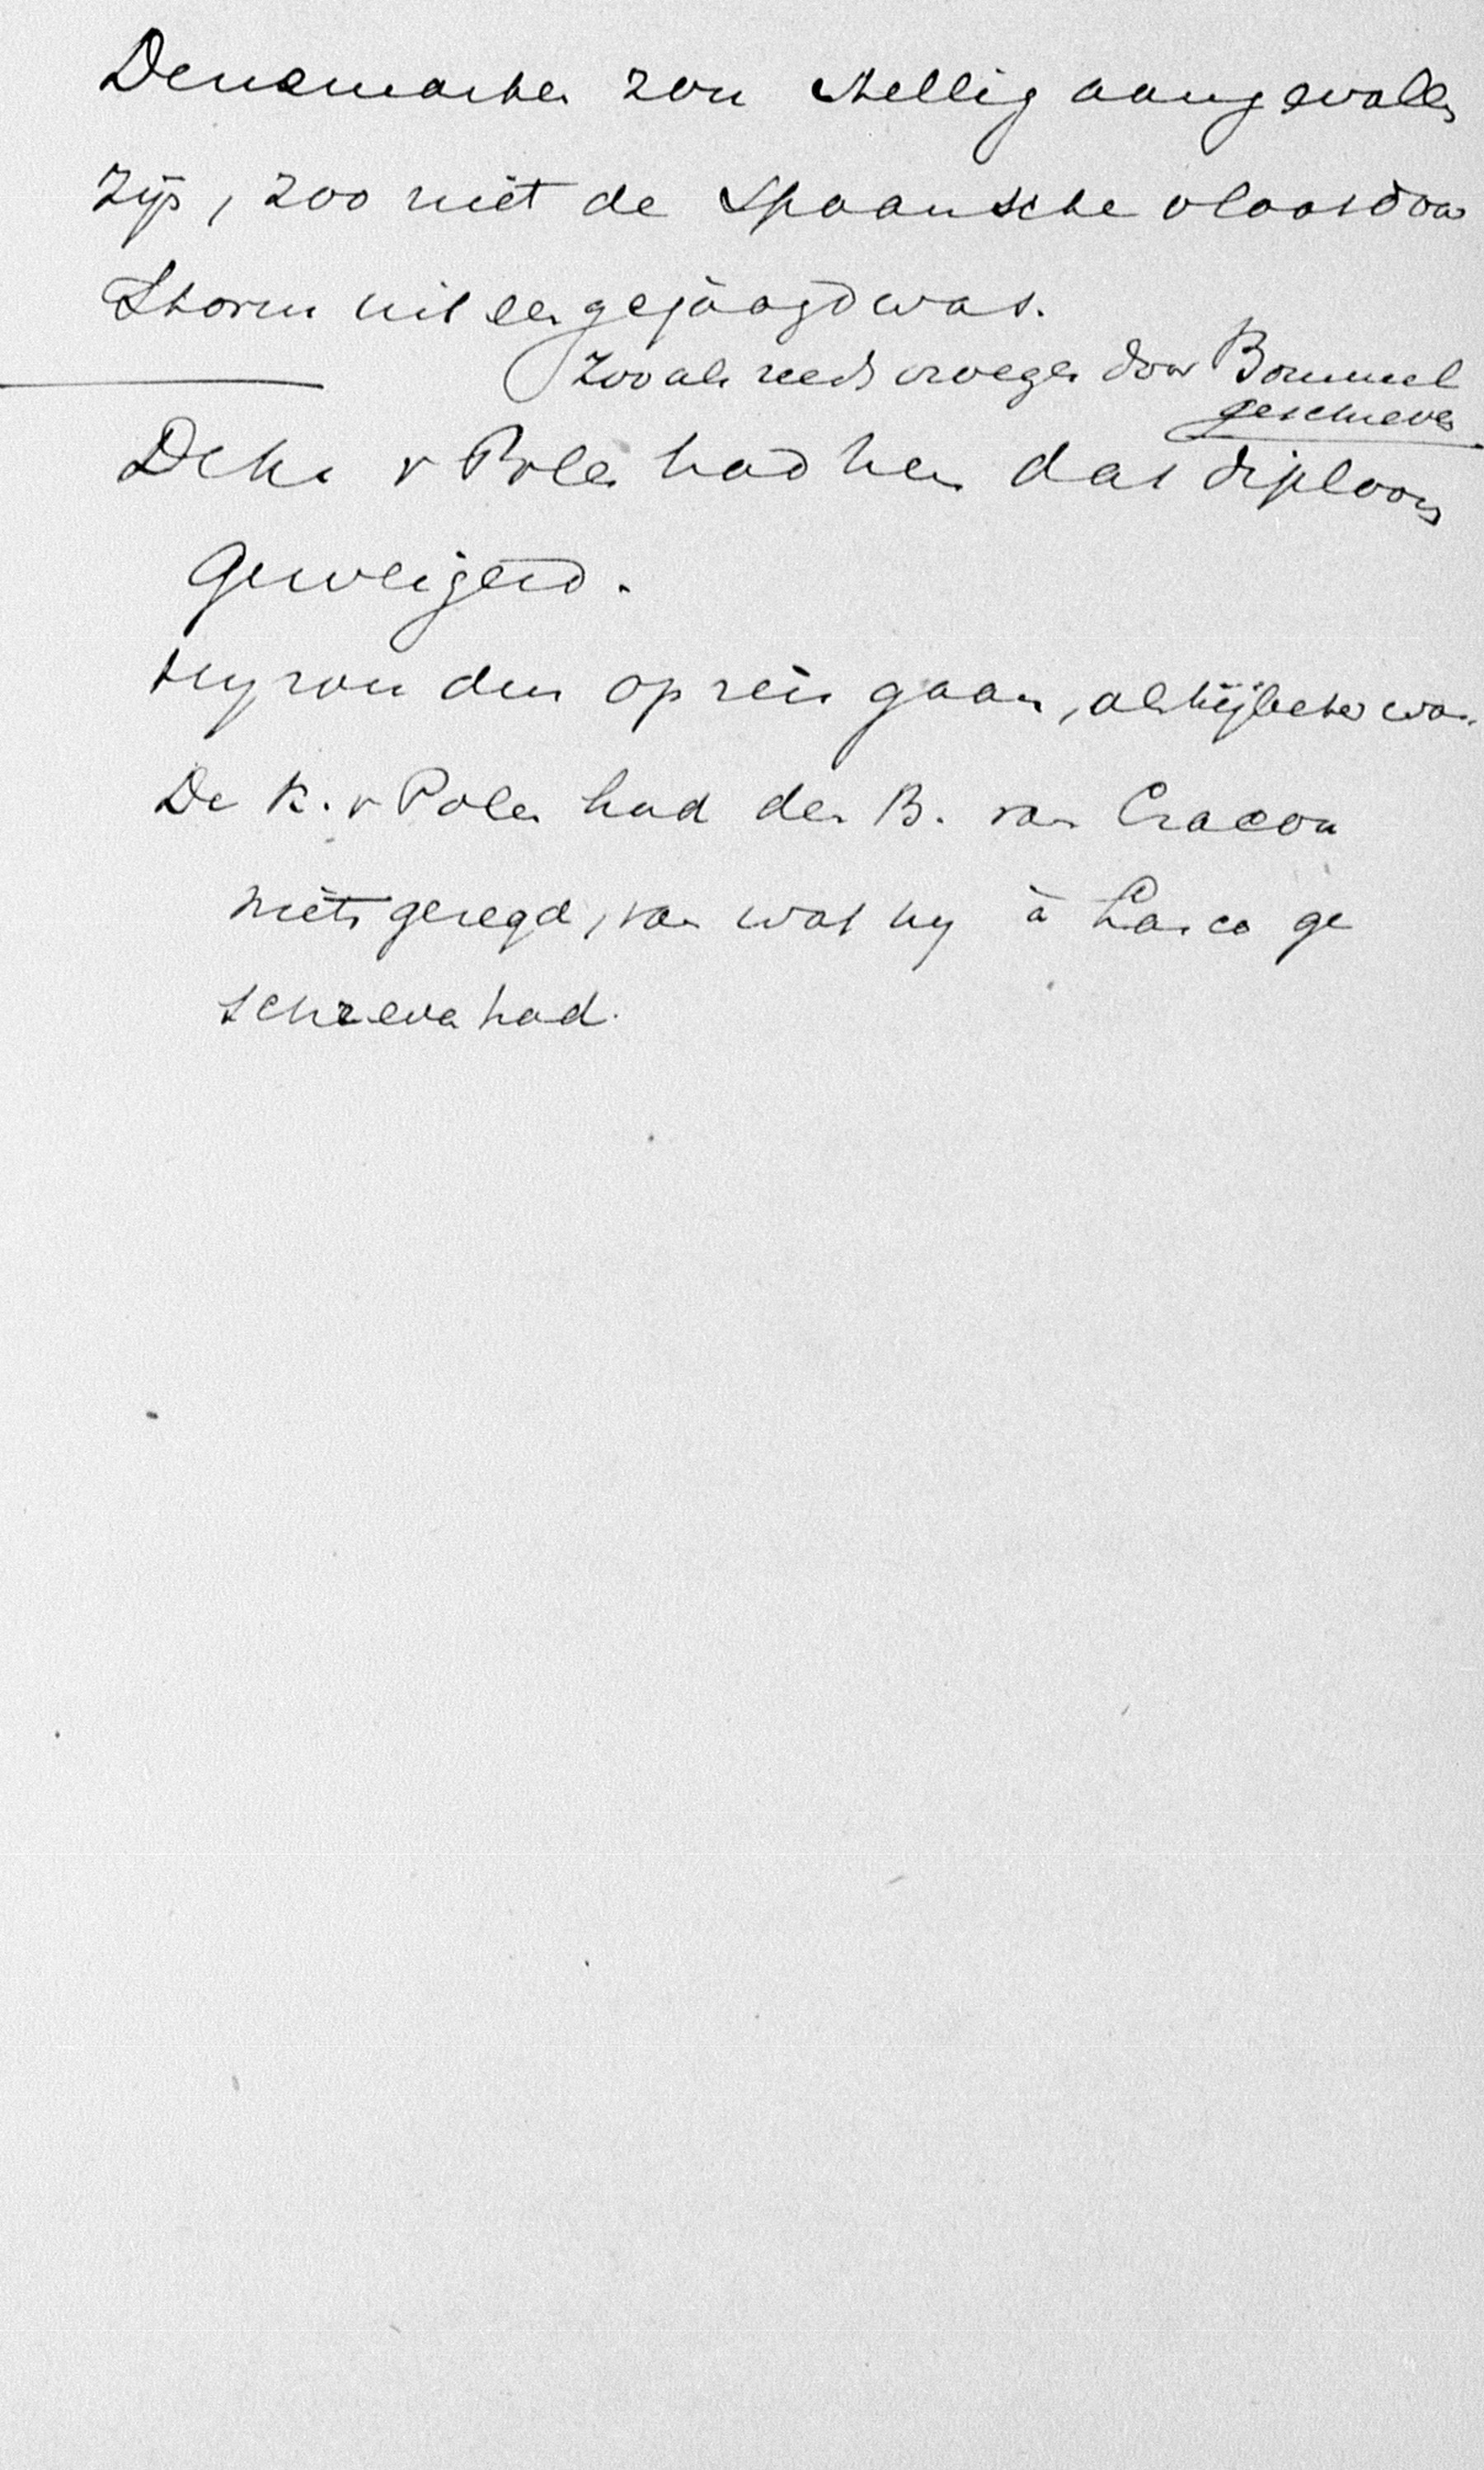 Denemarken zou stellig aangevallen
zijn, zoo niet de Spaansche vloot door
Storm uit een gejaagd was.
Zooals reeds vroeger door Bommel
geschreven
De K. v Polen had hem dat diploom
geweigerd.
Hy zou dus op reis gaan, als hij beter was.
De K. v Polen had den B. van Cracou
niets gezegd, van wat hy à Lasco ge
schreven had.